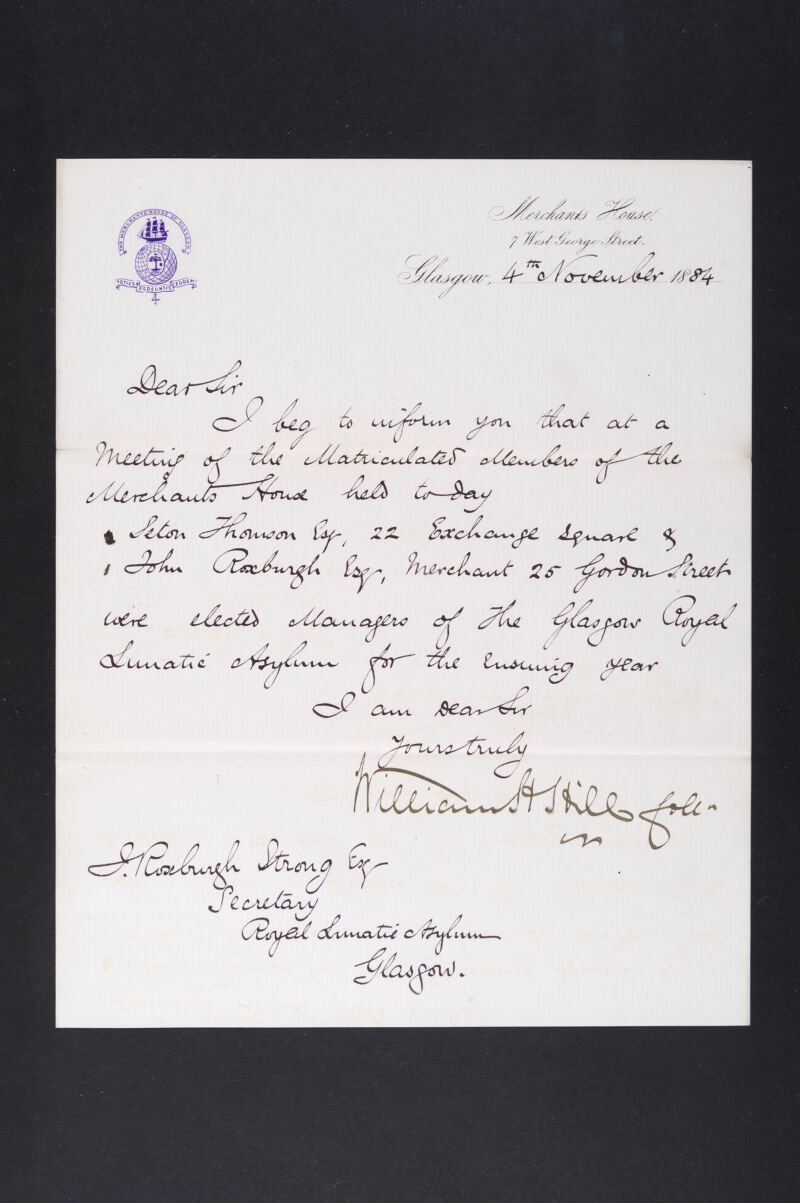 THE MERCHANTS HOUSE OF GLASGOW
TOTIES REDEUNTIS EODEM
Merchants House,
7 West George Street.
Glasgow, 4th November 1884
Dear Sir
I beg to inform you that at a
Meeting of the Matriculated Members of the
Merchants House held to day
Seton Thomson Esq, 22 Exchange Square &
John Roxburgh Esq, Merchant 25 Gordon Street
were elected Managers of the Glasgow Royal
Lunatic Asylum for the ensuing year
I am Dear Sir
Yours truly
William H Hill
J. Roxburgh Strong Esq
Secretary
Royal Lunatic Asylum
Glasgow.